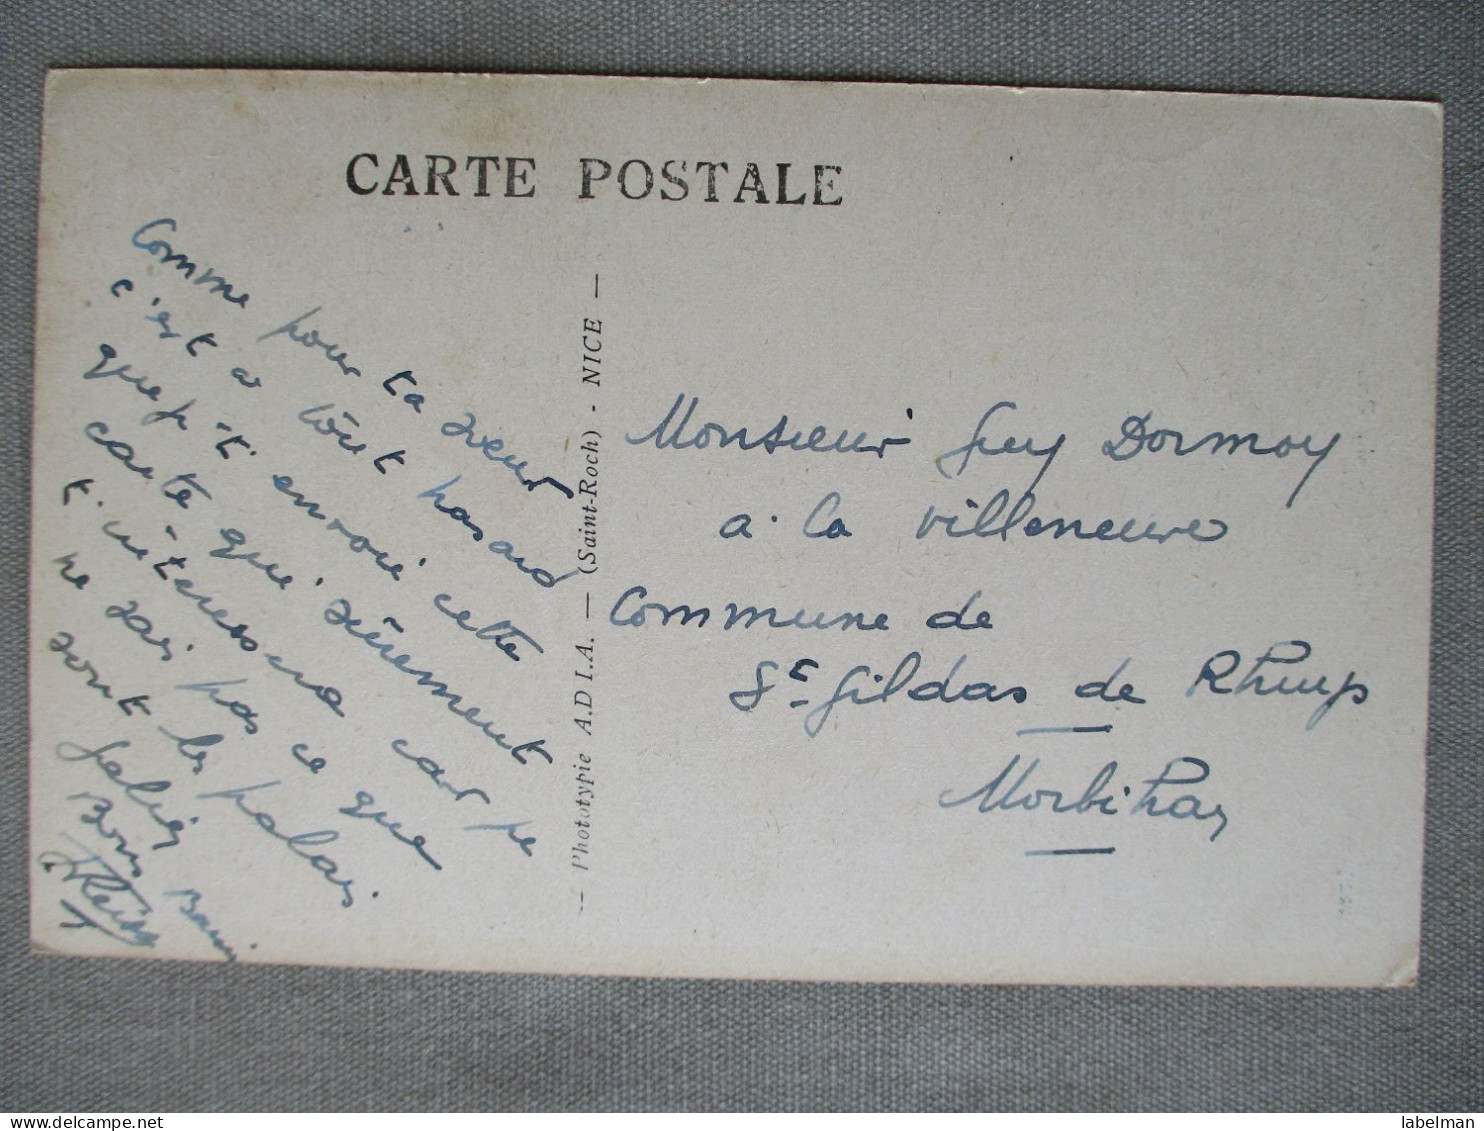 CARTE POSTALE
Comme pour ta sœur
c'est à tout hasard
que je t'envoie cette
carte qui sûrement
t'intéressera car je
ne sais pas ce que
sont les palais
Bons
— Phototypie A.D.I.A. — (Saint-Roch) - NICE —
Monsieur Guy Dormoy
à la Villeneuve
Commune de
St Gildas de Rhuys
Morbihan
delcampe.net
labelman